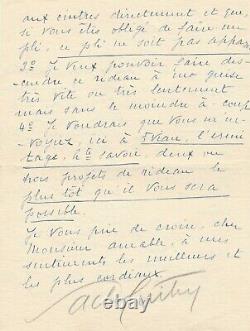 aux cintres directement et que,
si vous êtes obligé de faire un
pli, ce pli ne soit pas appar
3º Je veux pouvoir faire des-
cendre ce rideau à ma guise
très vite ou très lentement
mais sans le moindre à-coup
4º Je voudrais que vous m'en-
voyiez, ici à
tage, à savoir, deux ou
trois projets de rideau le
plus tôt qu'il vous sera
possible.
Je vous prie de croire, cher
Monsieur amable, à mes
sentiments les meilleurs et
les plus cordiaux
Sacha Guitry